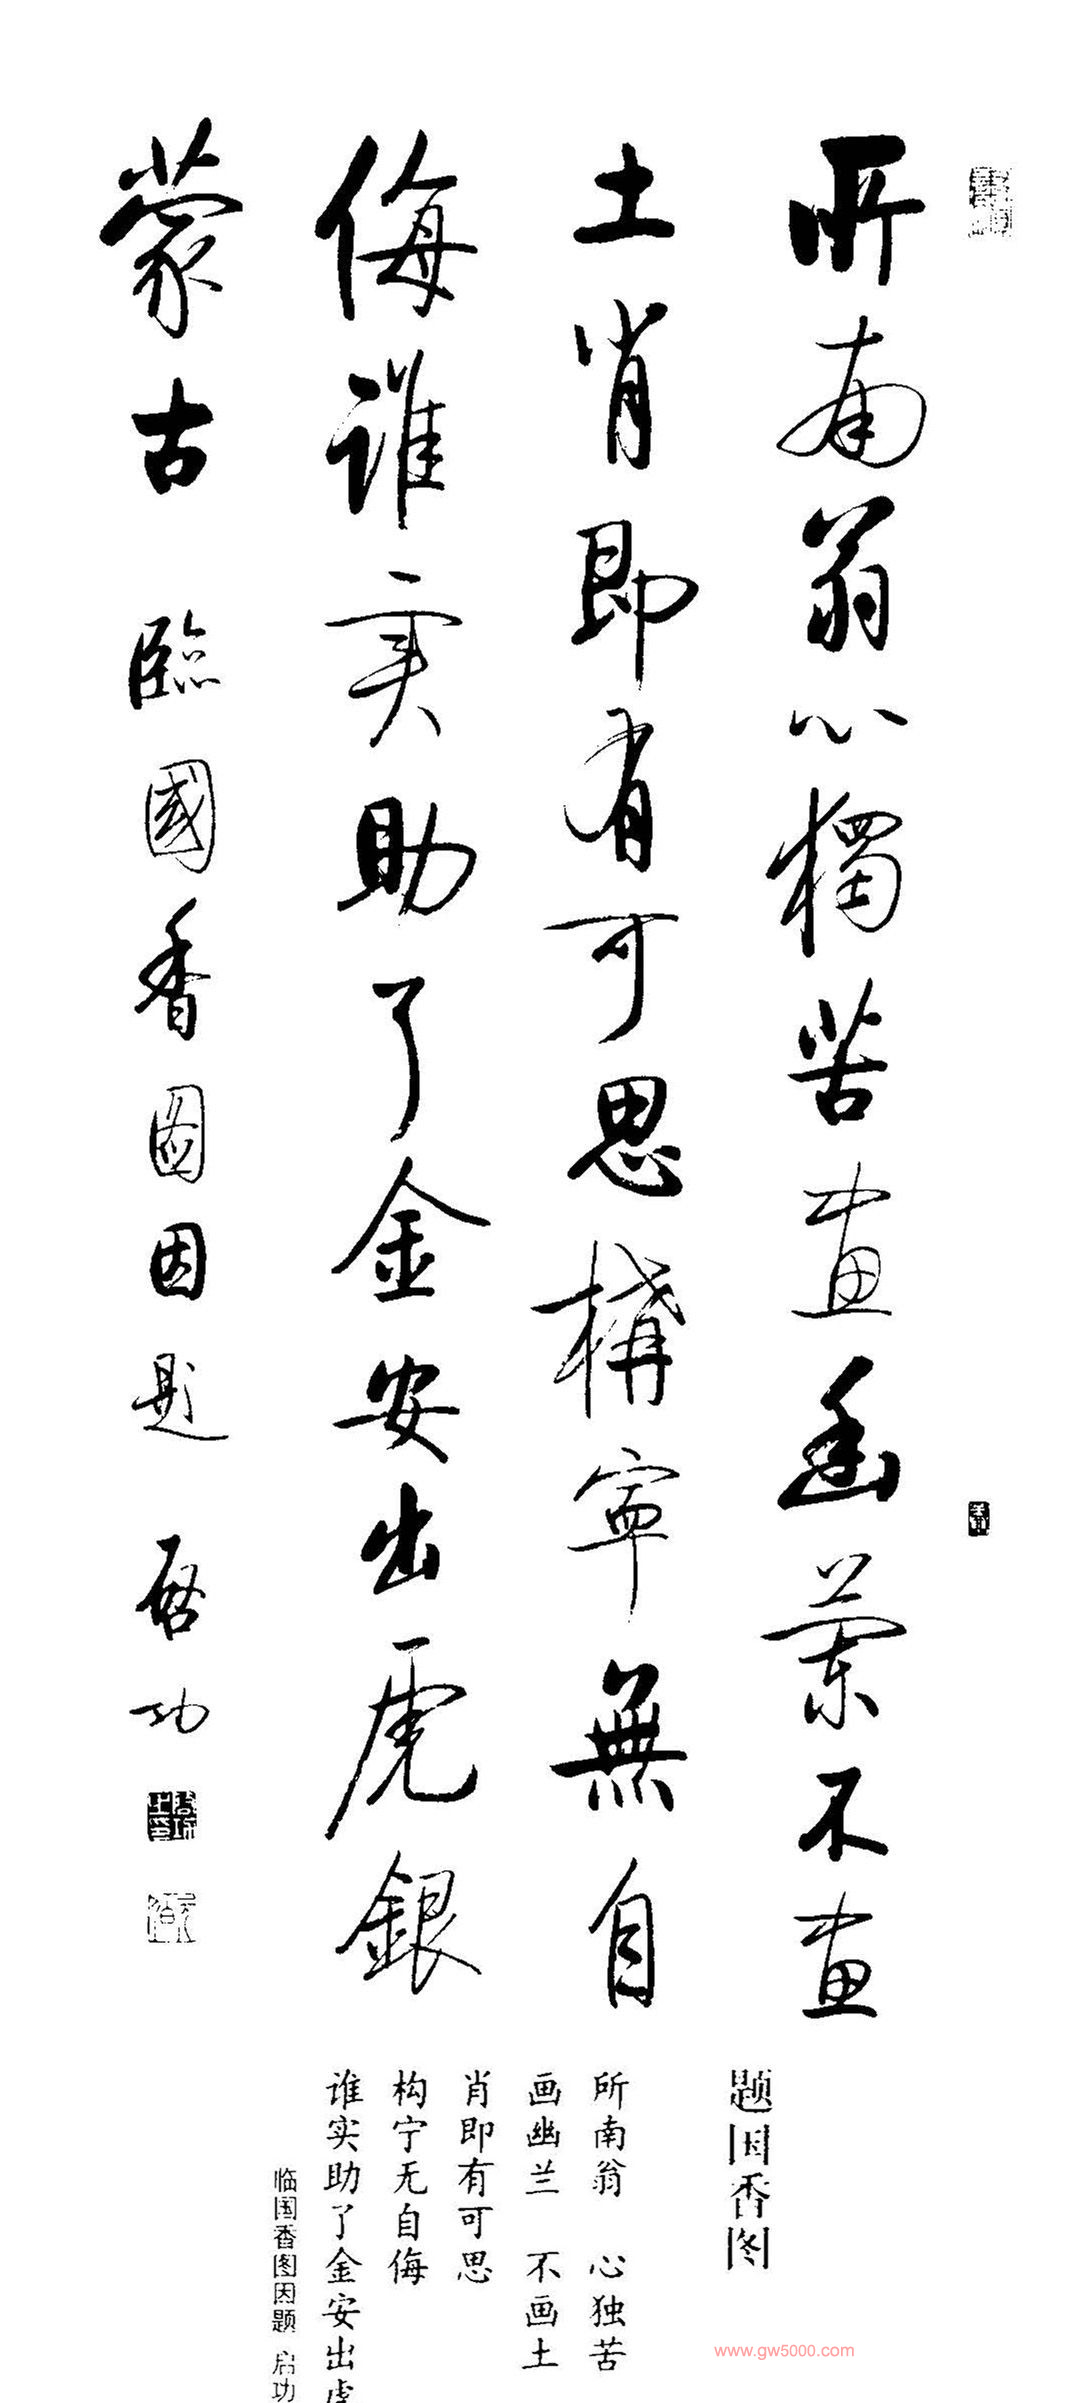 所南翁心獨苦画幽蘭不画
土肖即有可思構寧無自
侮谁实助了金安出虎銀
蒙古 臨國香图因题 启功
题国香图
所南翁 心独苦
画幽兰 不画土
肖即有可思
构宁无自侮
谁实助了金安出虎
临国香图因题 启功
www.gw5000.com